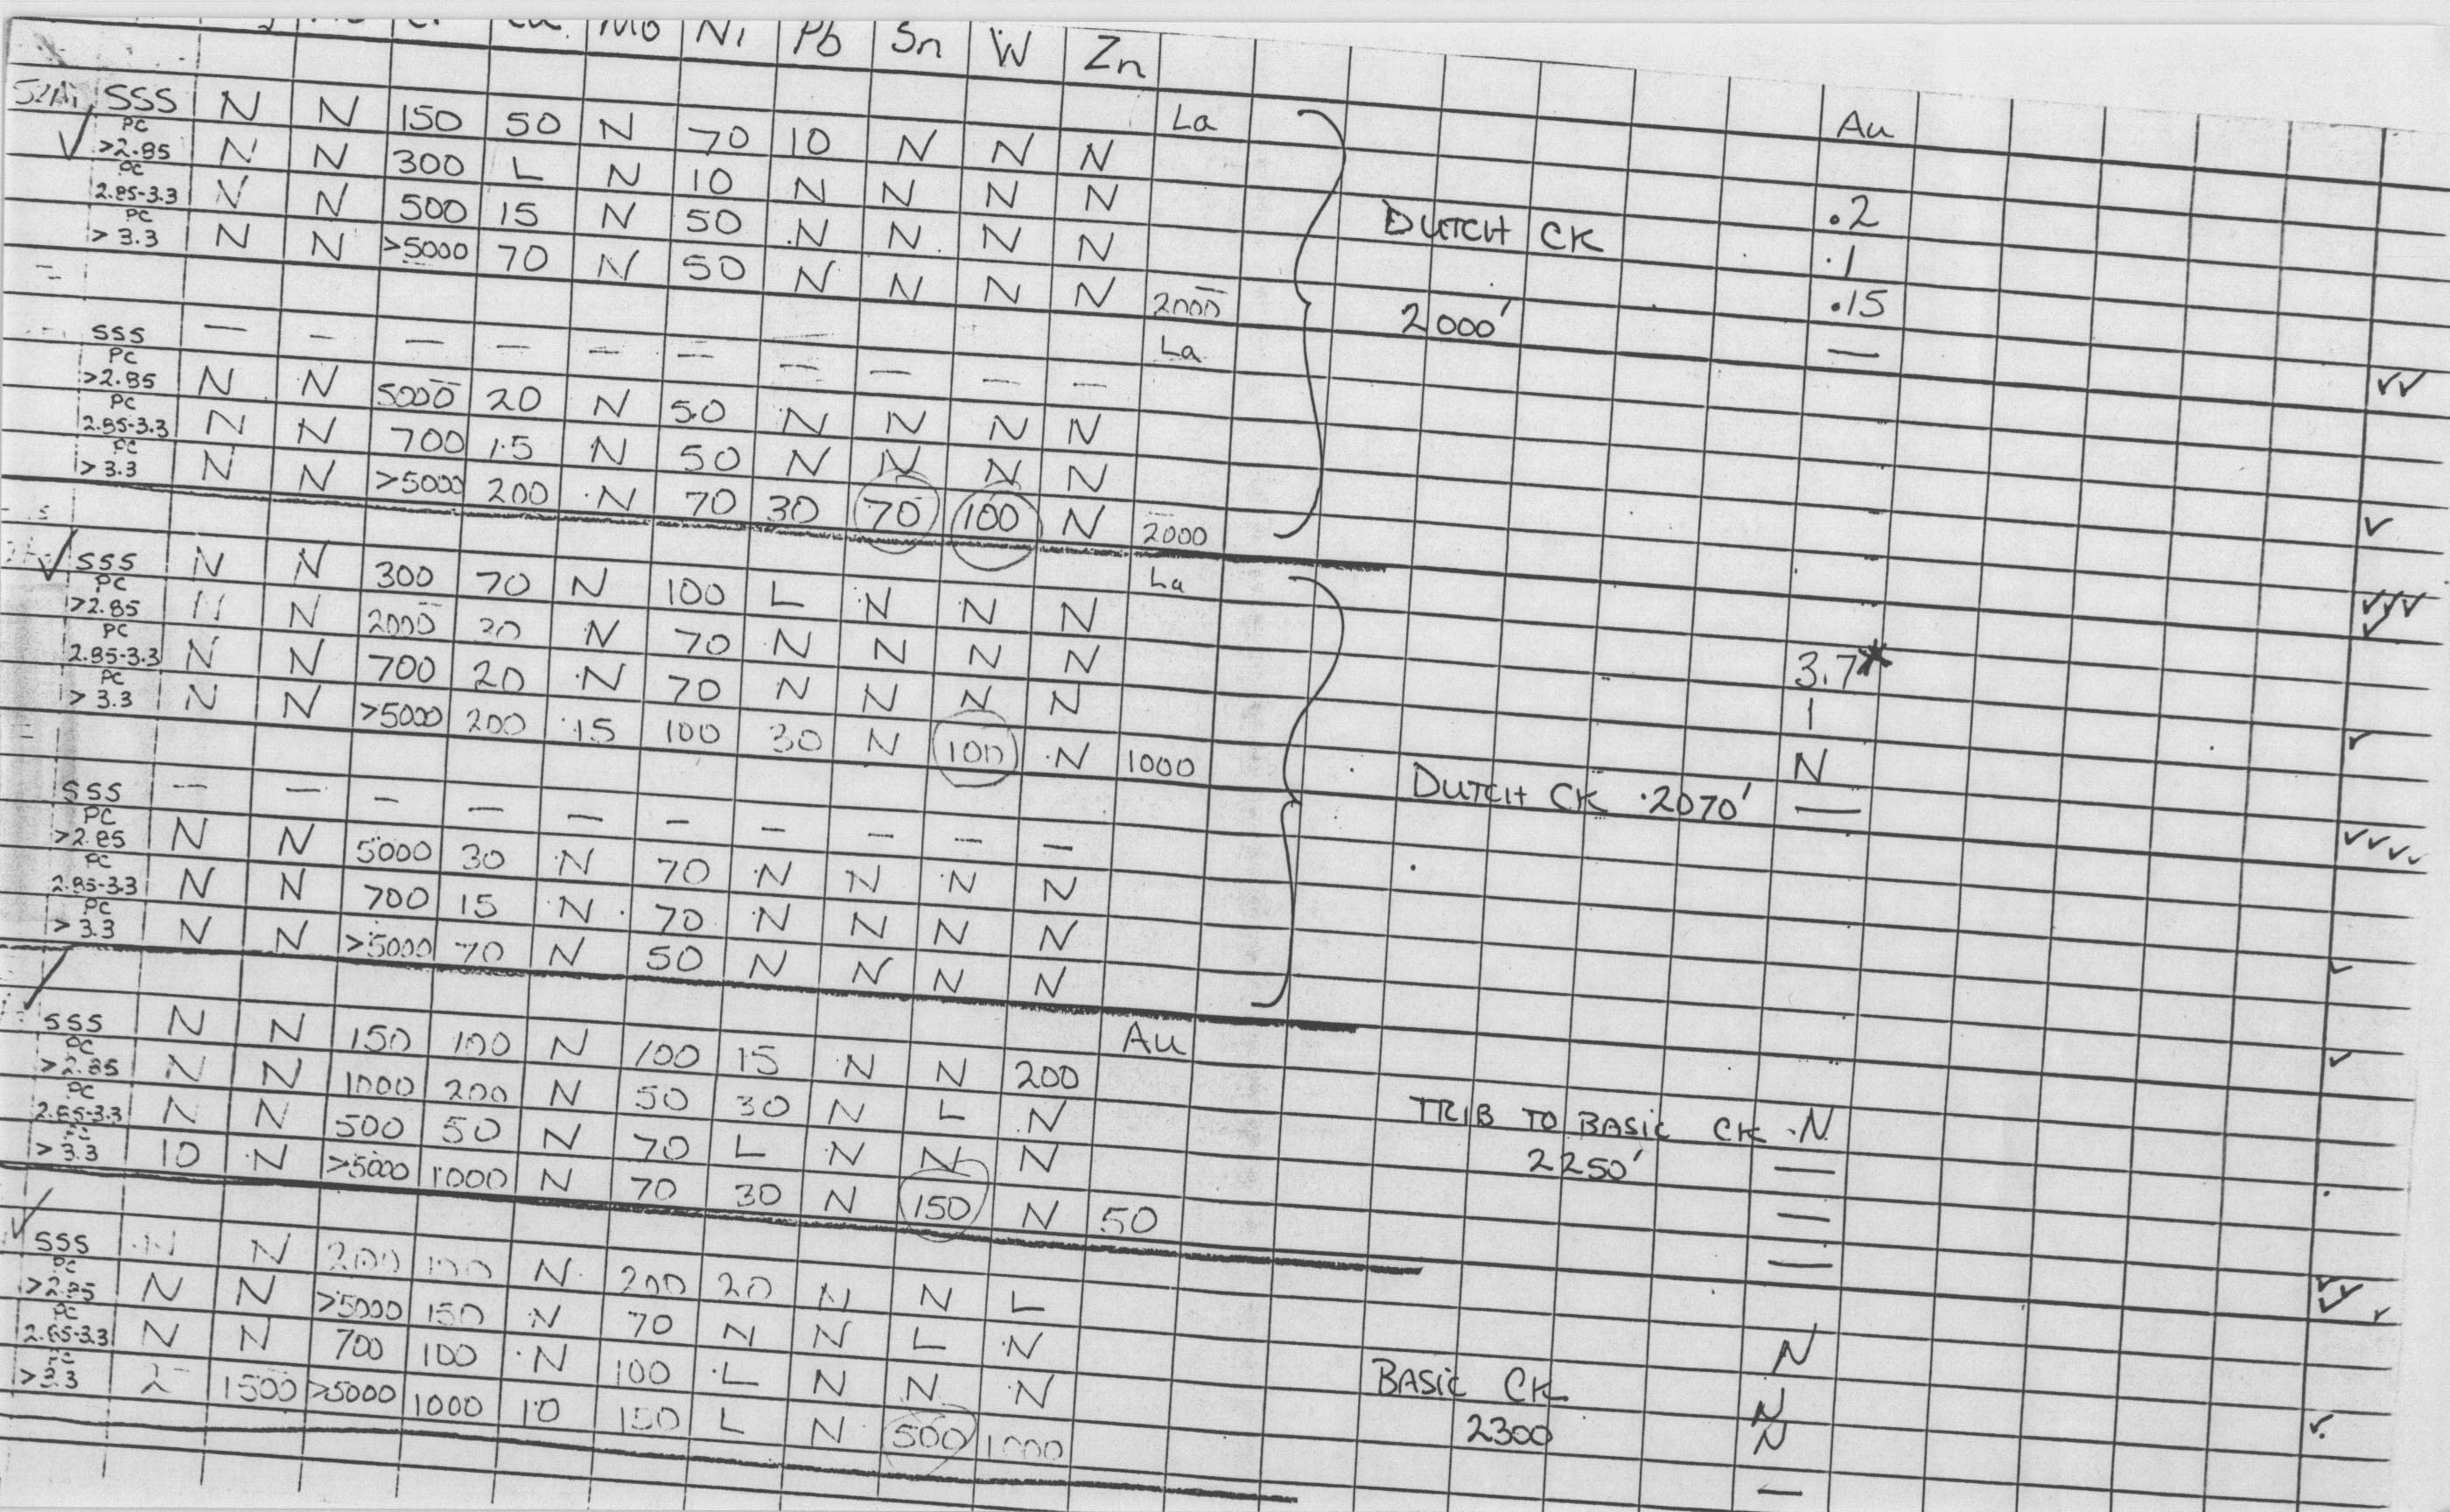 Mo Ni Pb Sn W Zn
SSS N N 150 50 N 70 10 N N N La Au
PC >2.85 N N 300 L N 10 N N N N .2
PC 2.85-3.3 N N 500 15 N 50 N N N N DUTCH CK .1
PC >3.3 N N >5000 70 N 50 N N N N 2000 2000' .15
SSS — — — — — — — — — — La —
PC >2.85 N N 5000 20 N 50 N N N N
PC 2.85-3.3 N N 700 15 N 50 N N N N
PC >3.3 N N >5000 200 N 70 30 70 100 N 2000
SSS N N 300 70 N 100 L N N N La
PC >2.85 N N 2000 20 N 70 N N N N 3.7*
PC 2.85-3.3 N N 700 20 N 70 N N N N 1
PC >3.3 N N >5000 200 15 100 30 N 100 N 1000 N
DUTCH CK 2070' —
SSS — — — — — — — — — —
PC >2.85 N N 5000 30 N 70 N N N N
PC 2.85-3.3 N N 700 15 N 70 N N N N
PC >3.3 N N >5000 70 N 50 N N N N
SSS N N 150 100 N 100 15 N N 200 Au
PC >2.85 N N 1000 200 N 50 30 N L N TRIB TO BASIC CK N
PC 2.85-3.3 N N 500 50 N 70 L N N N 2250' —
>3.3 10 N >5000 1000 N 70 30 N 150 N 50 —
—
SSS N N 200 100 N 200 20 N N L
PC >2.85 N N >5000 150 N 70 N N L N N
PC 2.85-3.3 N N 700 100 N 100 L N N N BASIC CK N
>3.3 2 1500 >5000 1000 10 150 L N 500 1000 2300 N
—